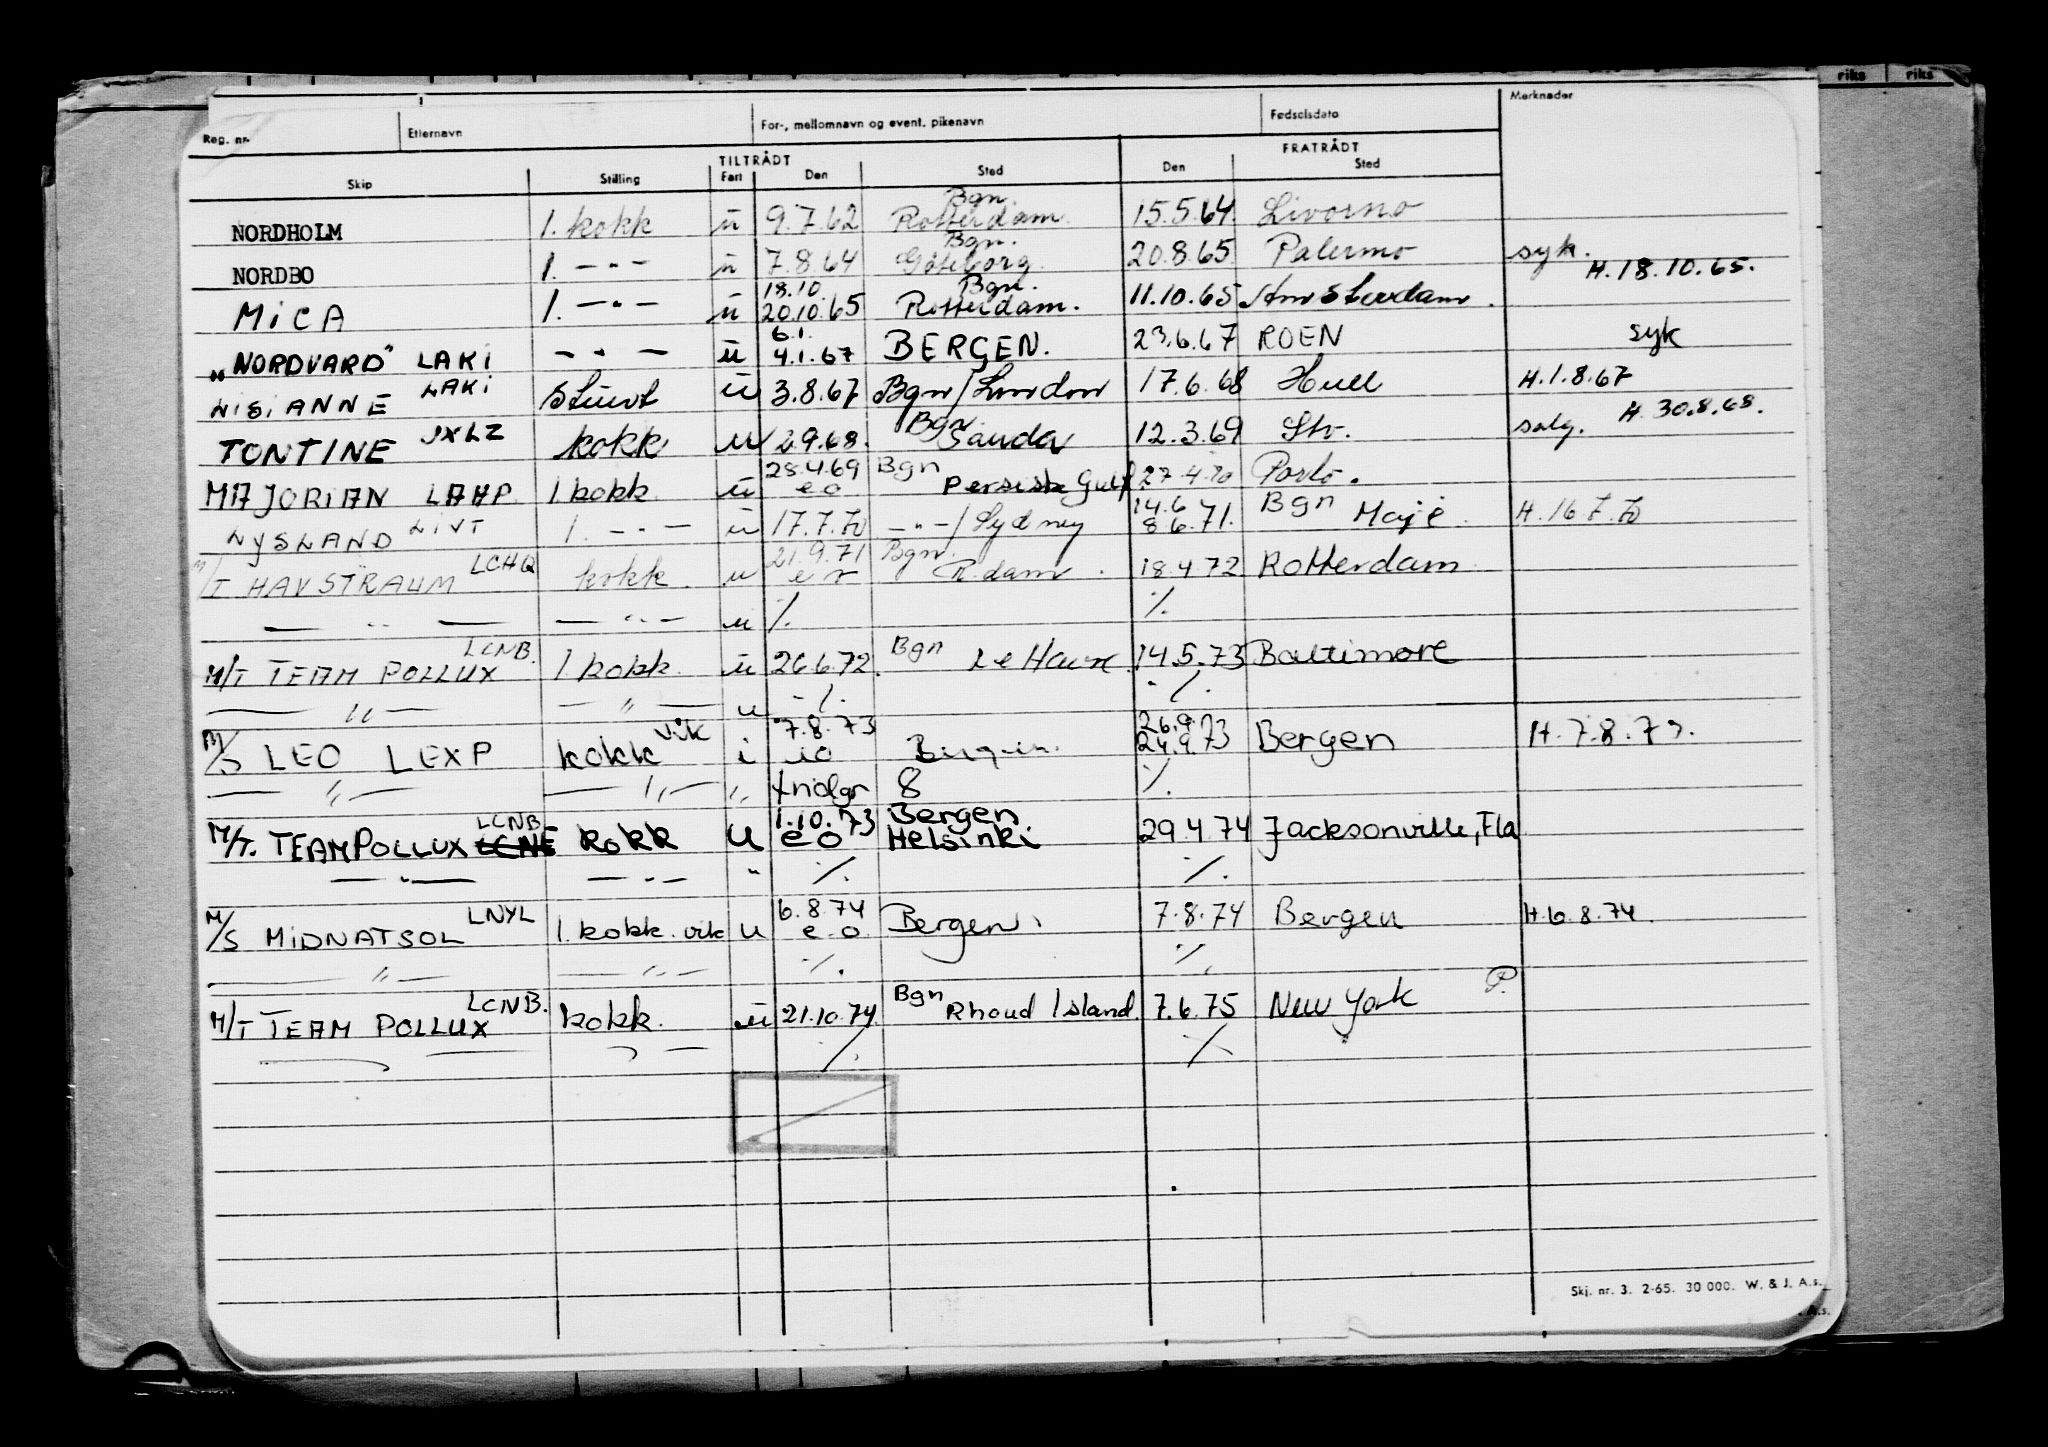 riks riks
Reg. nr. Etternavn For-, mellomnavn og event. pikenavn Fødselsdato Merknader
TILTRÅDT FRATRÅDT
Skip Stilling Fart Den Sted Den Sted
Bgn.
NORDHOLM 1. kokk u 9.7.62 Rotterdam. 15.5.64 Livorno
Bgn.
NORDBO 1. -"- u 7.8.64 Göteborg. 20.8.65 Palermo syk. H.18.10.65.
18.10 Bgn.
MiCA 1. -"- u 20.10.65 Rotterdam. 11.10.65 Amsterdam.
6.1.
„NORDVARD" LAKI -"- u 4.1.67 BERGEN. 23.6.67 ROEN syk
LISIANNE LAKI Stuert u 3.8.67 Bgn/London 17.6.68 Hull H.1.8.67
TONTINE JXLZ kokk u 2.9.68. Bgn Sauda 12.3.69 Stv. salg. H.30.8.68.
28.4.69 Bgn
MARJORIAN LAHP 1 kokk u e o Persiske Gulf 27.4.70 Porto.
14.6
LYSLAND LIVT 1. -"- u 17.7.70 -"-/Sydney 8.6.71. Bgn H.16.7.70
21.9.71 Bgn.
M/T HAVSTRAUM LCHQ kokk. u e o R.dam. 18.4.72 Rotterdam
-"- -"- u ./. ./.
M/T TEAM POLLUX LCNB. 1 kokk. u 26.6.72. Bgn Le Havre 14.5.73 Baltimore
-"- -"- u ./. ./.
7.8.73 26.9.73
M/S LEO LEXP kokk vik i io Bergen. 24.9.73 Bergen H.7.8.73.
-"- -"- " 8 ./.
1.10.73 Bergen
M/T. TEAM POLLUX LCNB LCNE kokk u e o Helsinki 29.4.74 Jacksonville, Fla
-"- -"- " ./. ./.
6.8.74
M/S MIDNATSOL LNYL 1. kokk. vik u e.o. Bergen 7.8.74 Bergen H.6.8.74.
-"- -"- ./. ./.
M/T TEAM POLLUX LCNB. kokk. u 21.10.74 Bgn Rhoud Island. 7.6.75 New York P.
./. ./.
Skj. nr. 3. 2-65. 30 000. W. & J. A.s.
A.s.